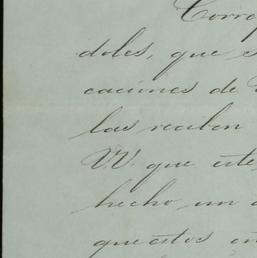 Corre
doles, que e
caciones de
las reciben
V.V. que este
hecho un
que estos en